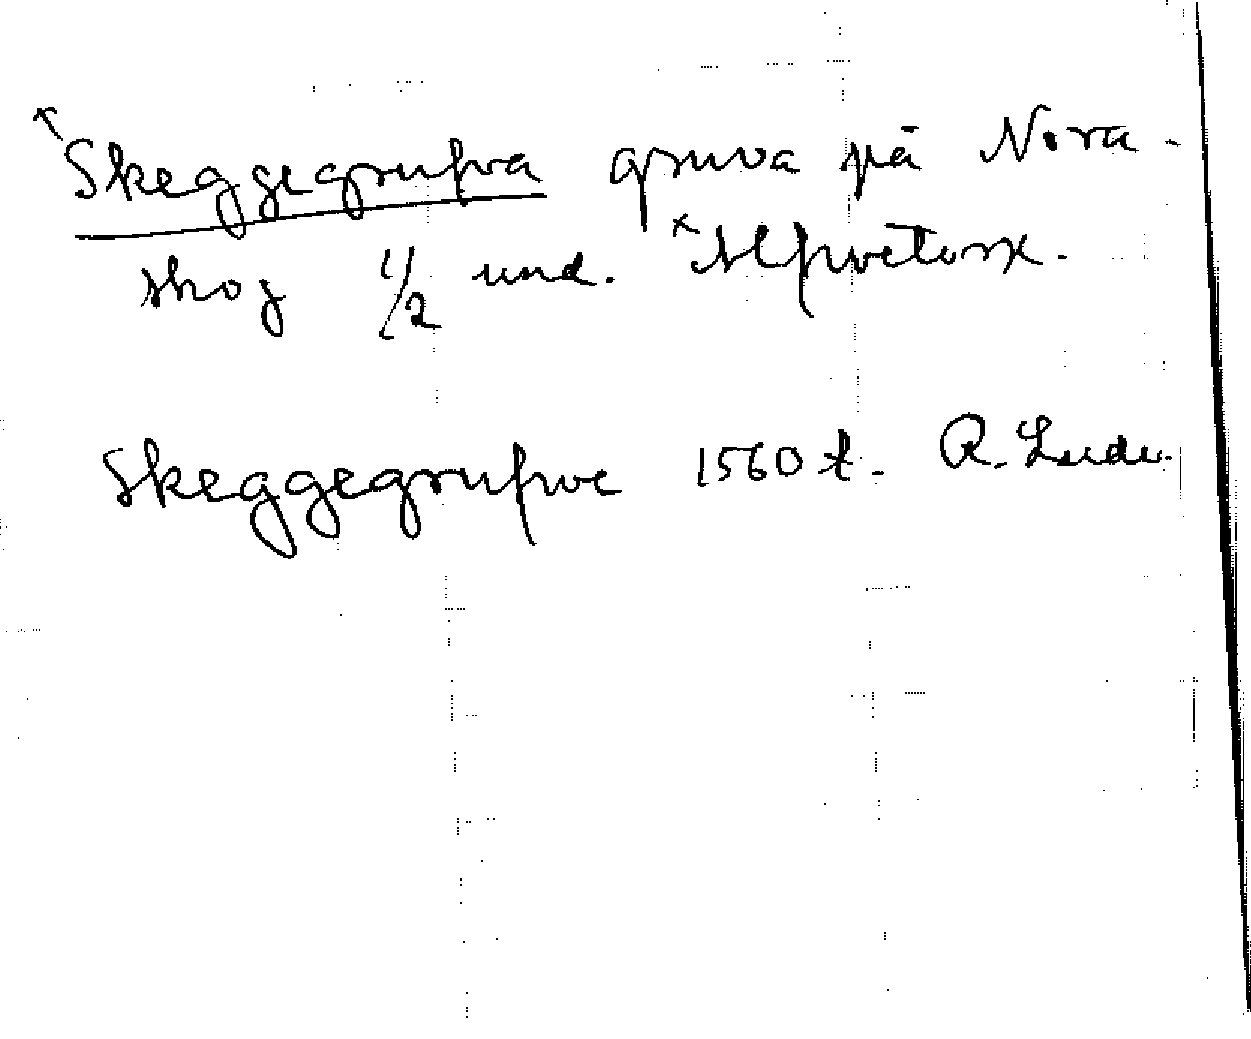 x Skeggegrufva gruva på Nora-
skog 1/2 und. x Alfwetorx.
Skeggegrufwe 1560 t. R. Ludv.